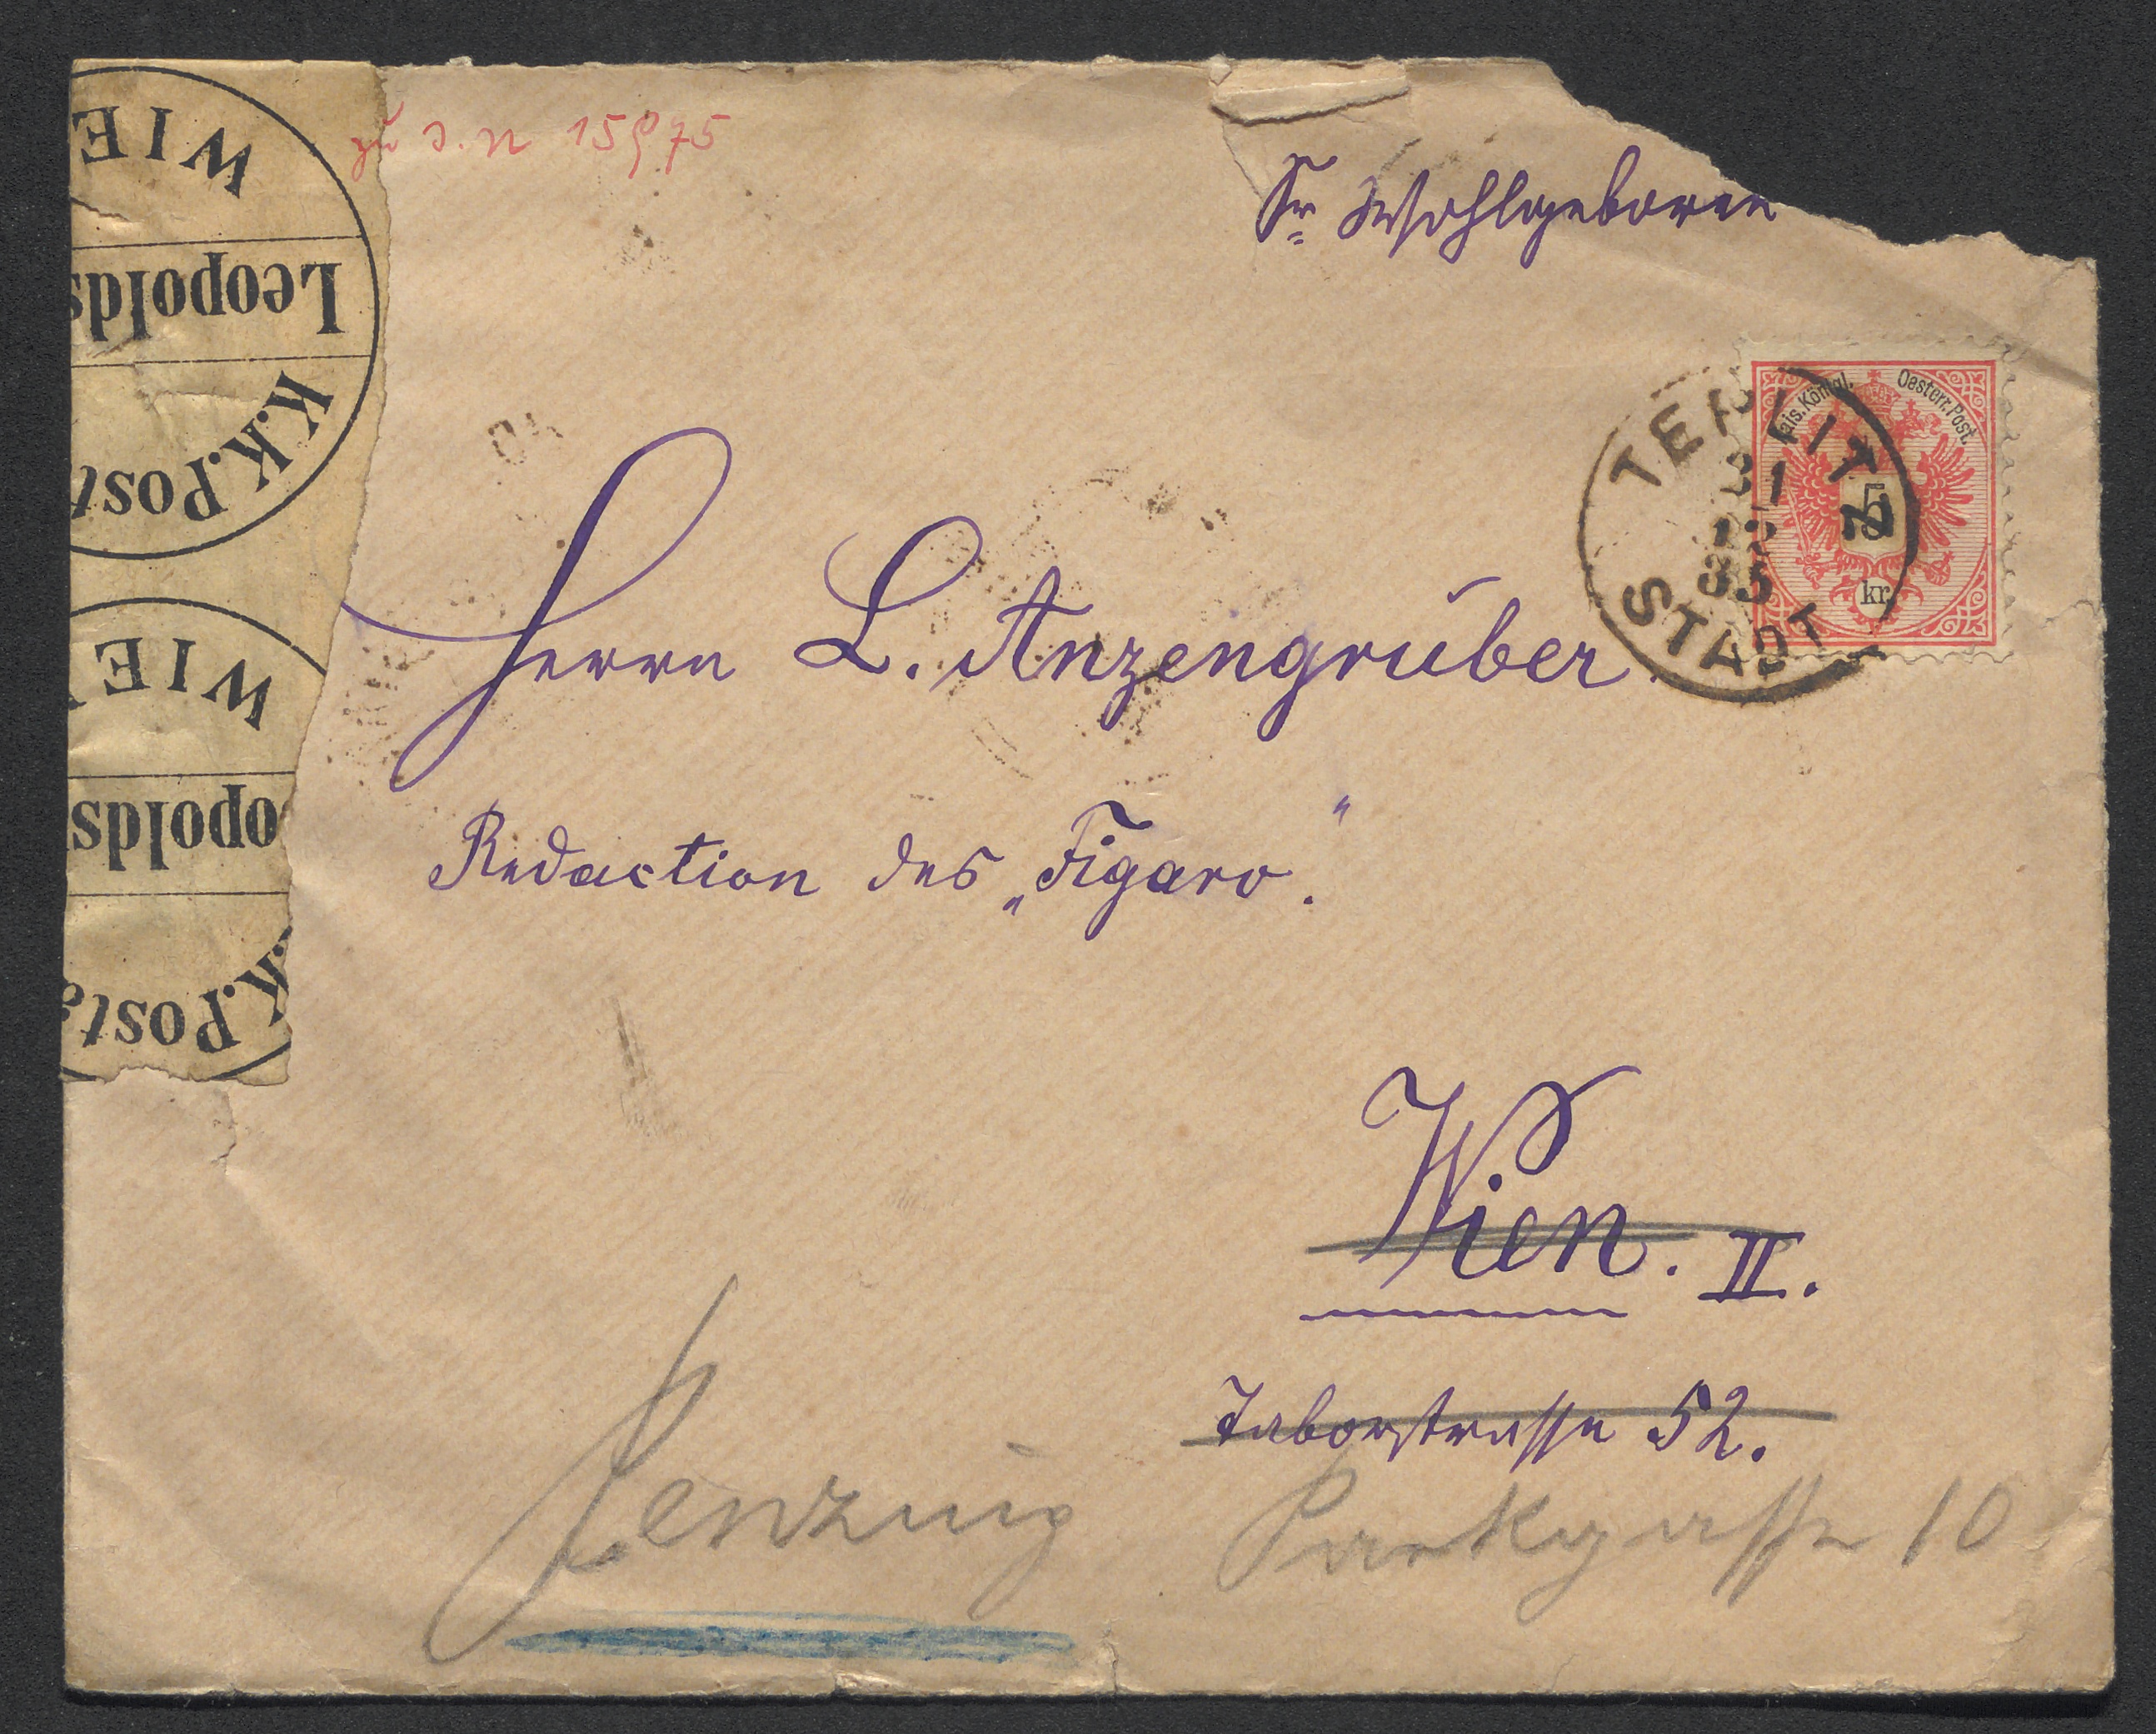 zu I. N 15975
Sr Wohlgeboren
Herrn L. Anzengruber.
Redaction des „Figaro“.
Wien. II.
Taborstrasse 52.
Penzing Parkgasse 10
Kais. Königl. Oesterr. Post.
5
kr
TEPLITZ
31
12
85
STADT
WIE
Leopolds
K.K. Post
WIE
opolds
K. Posta